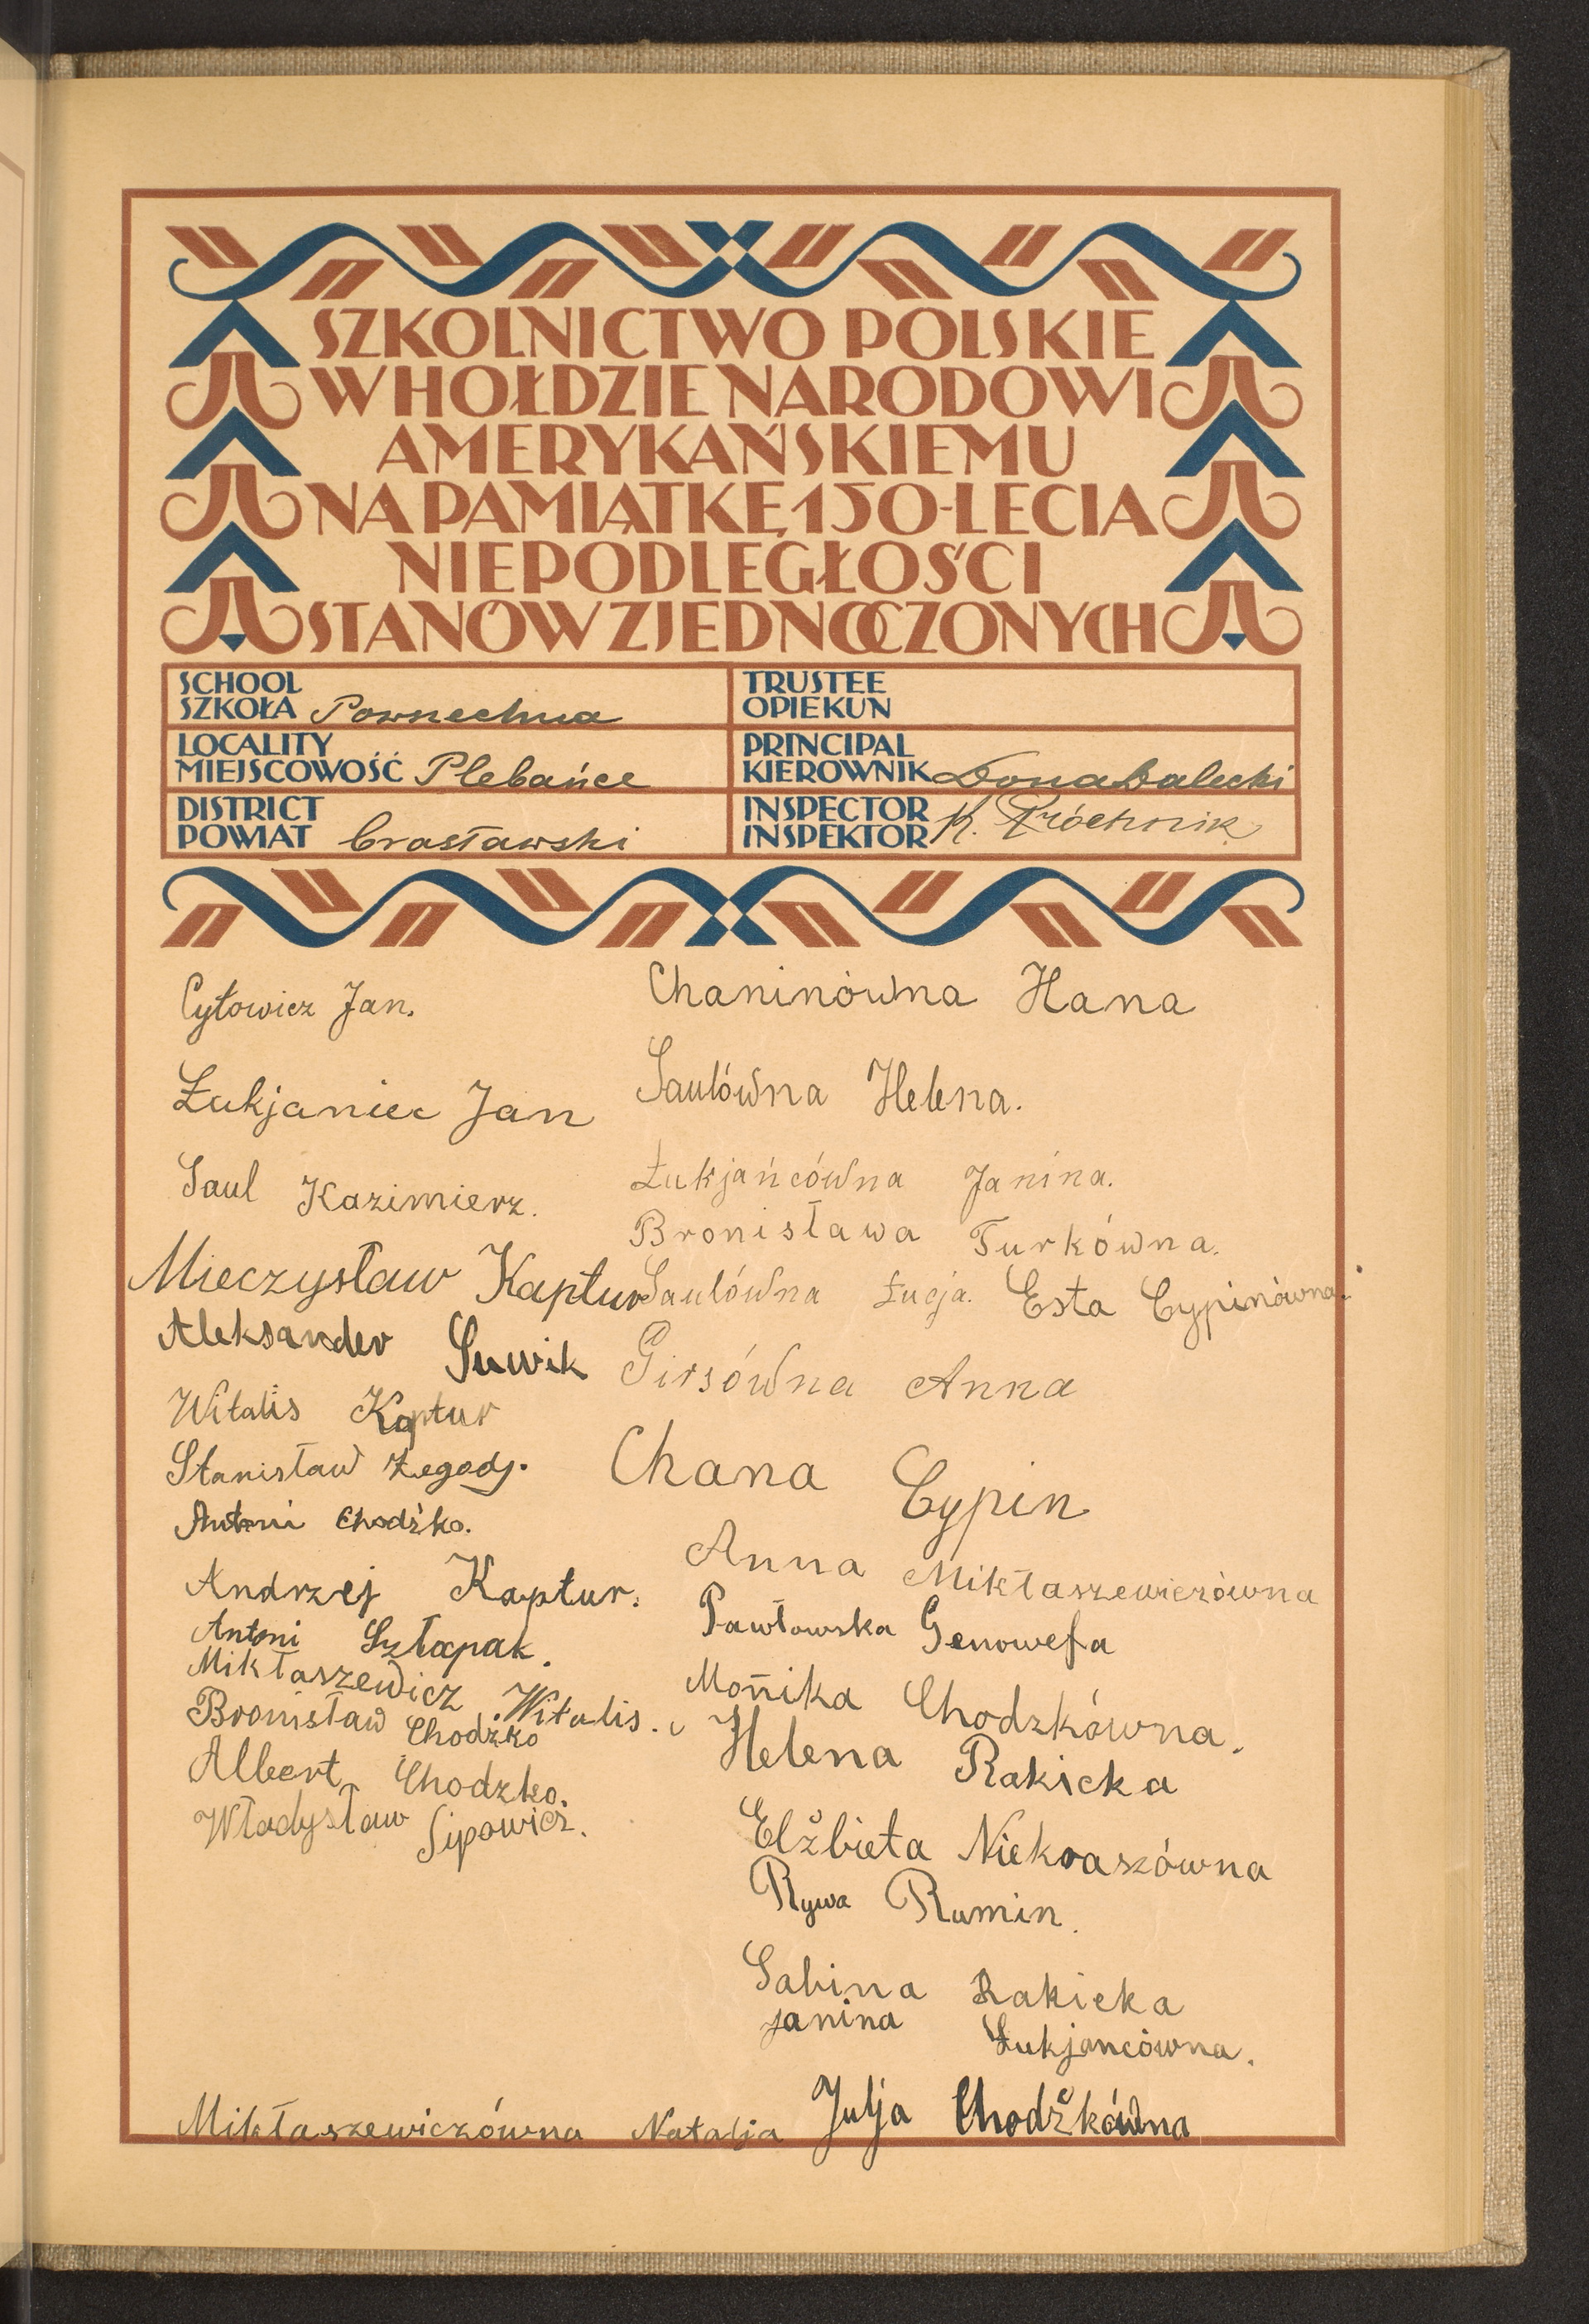 SZKOLNICTWO POLSKIE
W HOŁDZIE NARODOWI
AMERYKAŃSKIEMU
NA PAMIĄTKĘ 150-LECIA
NIEPODLEGŁOŚCI
STANÓW ZJEDNOCZONYCH
SCHOOL
SZKOŁA Powszechna
TRUSTEE
OPIEKUN
LOCALITY
MIEJSCOWOŚĆ Plebańce
PRINCIPAL
KIEROWNIK
DISTRICT
POWIAT brasławski
INSPECTOR
INSPEKTOR K. Próchnik
Cytowicz Jan.
Łukjaniec Jan
Saul Kazimierz.
Mieczysław Kaptur
Aleksander Suwik
Witalis Kaptur
Stanisław
Antoni Chodźko.
Andrzej Kaptur.
Antoni Szłapak.
Mikłaszewicz Witalis.
Bronisław Chodzko
Albert Chodzko.
Władysław Sipowicz.
Chaninówna Hana
Saulówna Helena.
Łukjańcówna Janina.
Bronisława Turkówna.
Saulówna Łucja. Esta Cypinówna.
Girsówna Anna
Chana Cypin
Anna Mikłaszewiczówna
Pawłowska Genowefa
Monika Chodzkówna.
Helena Rakicka
Elżbieta Niekraszówna
Rywa Rumin.
Sabina Rakicka
Janina Łukjancówna.
Mikłaszewiczówna Natalja Julja Chodźkówna